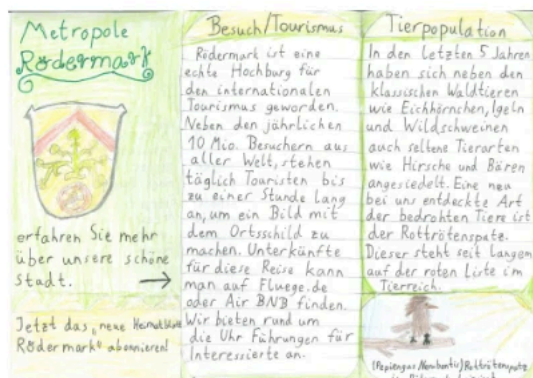 Metropole
Rödermark
erfahren Sie mehr
über unsere schöne
Stadt.
Jetzt das „neue Heimatblatt
Rödermark“ abonnieren!
Besuch/Tourismus
Rödermark ist eine
echte Hochburg für
den internationalen
Tourismus geworden.
Neben den jährlichen
10 Mio. Besuchern aus
aller Welt, stehen
täglich Touristen bis
zu einer Stunde lang
an, um ein Bild mit
dem Ortsschild zu
machen. Unterkünfte
für diese Reise kann
man auf Fluege.de
oder Air BNB finden.
Wir bieten rund um
die Uhr Führungen für
Interessierte an.
Tierpopulation
In den letzten 5 Jahren
haben sich neben den
klassischen Waldtieren
wie Eichhörnchen, Igeln
und Wildschweinen
auch seltene Tierarten
wie Hirsche und Bären
angesiedelt. Eine neu
bei uns entdeckte Art
der bedrohten Tiere ist
der Rottrötenspatz.
Dieser steht seit langem
auf der roten Liste im
Tierreich.
Rottrötenspatz